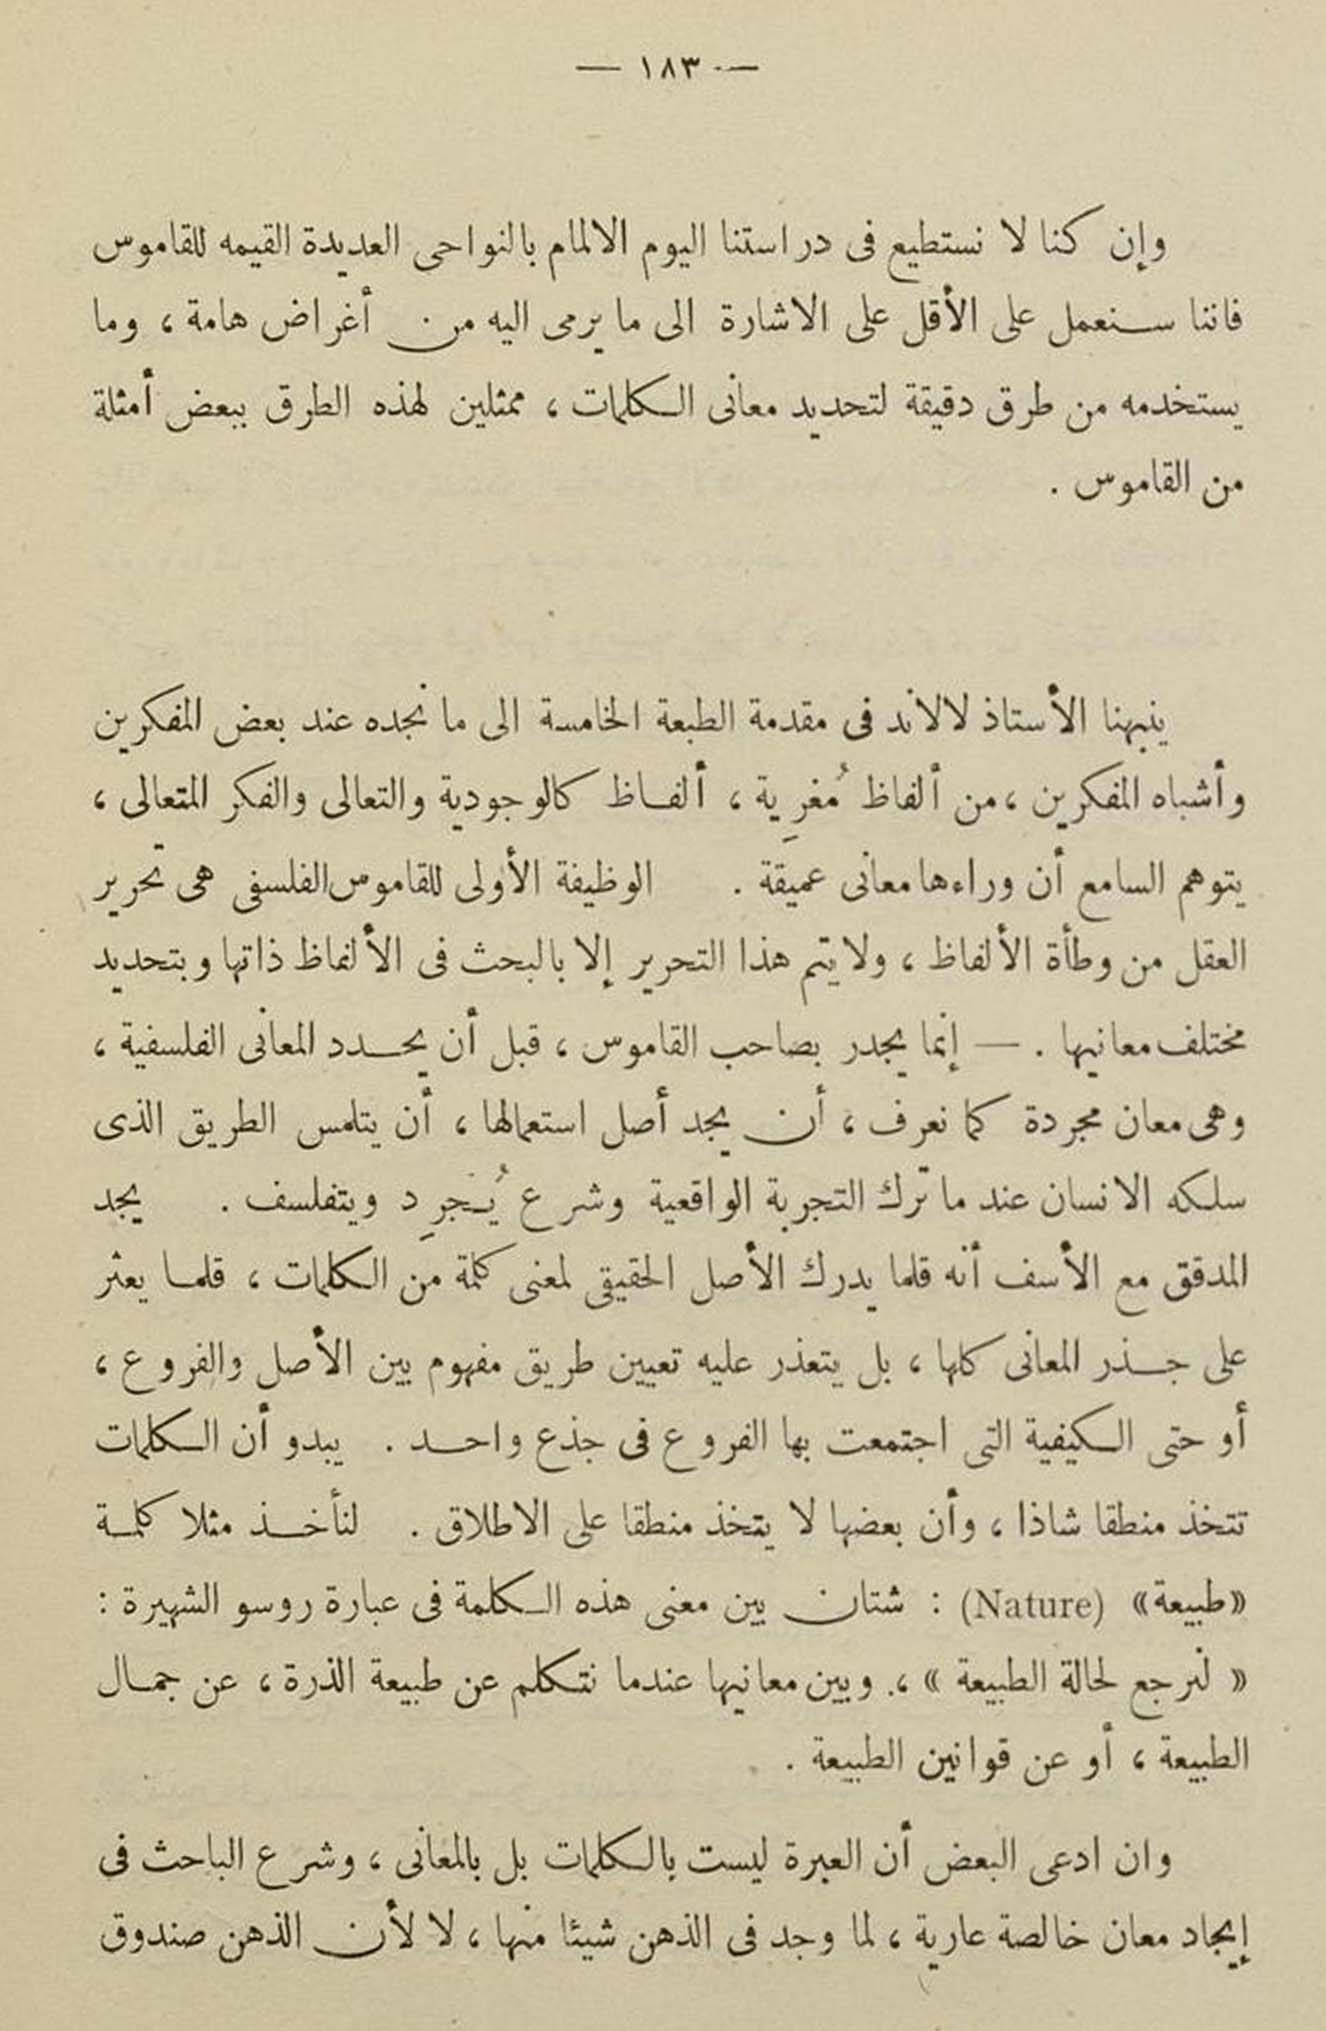 — ١٨٣ —
وإن كنا لا نستطيع فى دراستنا اليوم الالمام بالنواحى العديدة القيمه للقاموس
فاننا سنعمل على الأقل على الاشارة الى ما يرمى اليه من أغراض هامة ، وما
يستخدمه من طرق دقيقة لتحديد معانى الكلمات ، ممثلين لهذه الطرق ببعض أمثلة
من القاموس .
ينبهنا الأستاذ لالاند فى مقدمة الطبعة الخامسة الى ما نجده عند بعض المفكرين
وأشباه المفكرين ، من ألفاظ مُغرِية ، ألفاظ كالوجودية والتعالى والفكر المتعالى ،
يتوهم السامع أن وراءها معانى عميقة . الوظيفة الأولى للقاموس الفلسفى هى تحرير
العقل من وطأة الألفاظ ، ولا يتم هذا التحرير إلا بالبحث فى الألفاظ ذاتها وبتحديد
مختلف معانيها . — إنما يجدر بصاحب القاموس ، قبل أن يحدد المعانى الفلسفية ،
وهى معان مجردة كما نعرف ، أن يجد أصل استعمالها ، أن يتلمس الطريق الذى
سلكه الانسان عند ما ترك التجربة الواقعية وشرع يُجرِد ويتفلسف . يجد
المدقق مع الأسف أنه قلما يدرك الأصل الحقيقى لمعنى كلمة من الكلمات ، قلما يعثر
على جذر المعانى كلها ، بل يتعذر عليه تعيين طريق مفهوم بين الأصل والفروع ،
أو حتى الكيفية التى اجتمعت بها الفروع فى جذع واحد . يبدو أن الكلمات
تتخذ منطقا شاذا ، وأن بعضها لا يتخذ منطقا على الاطلاق . لنأخذ مثلا كلمة
«طبيعة» (Nature) : شتان بين معنى هذه الكلمة فى عبارة روسو الشهيرة :
« لنرجع لحالة الطبيعة » ، وبين معانيها عندما نتكلم عن طبيعة الذرة ، عن جمال
الطبيعة ، أو عن قوانين الطبيعة .
وان ادعى البعض أن العبرة ليست بالكلمات بل بالمعانى ، وشرع الباحث فى
إيجاد معان خالصة عارية ، لما وجد فى الذهن شيئا منها ، لا لأن الذهن صندوق